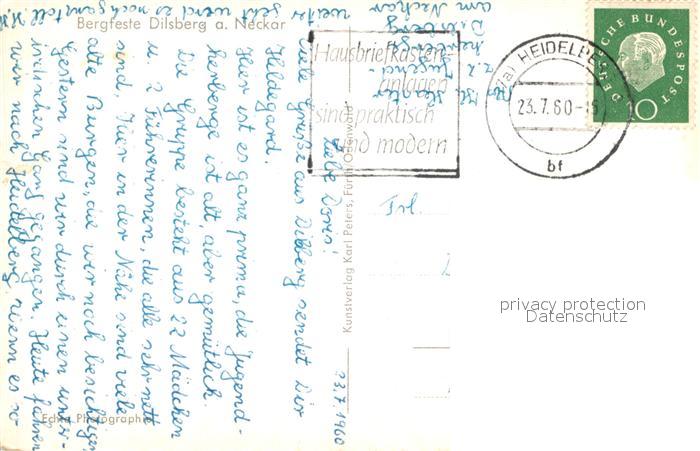 Bergfeste Dilsberg a. Neckar
Hausbriefkasten-
anlagen
sind praktisch
und modern
HEIDELBERG
23.7.60-15
bf
DEUTSCHE BUNDESPOST
10
23.7.1960
Liebe Doris!
Viele Grüße aus Dilsberg sendet Dir
Hildegard.
Hier ist es ganz prima, die Jugend-
herberge ist alt, aber gemütlich.
Die Gruppe besteht aus 22 Mädchen
u. 2 Führerinnen, die alle sehr nett
sind. Hier in der Nähe sind viele
alte Burgen, die wir noch besichtigen.
Gestern sind wir durch einen unter-
irdischen Gang gegangen. Heute fahren
wir nach Heidelberg, wenn es so
weiter geht, wird es noch ganz toll.
z.Z. Jugend-
herberge
Dilsberg
am Neckar
Frl.
Kunstverlag Karl Peters, Fürth/Odenwald
Echte Photographie
privacy protection
Datenschutz